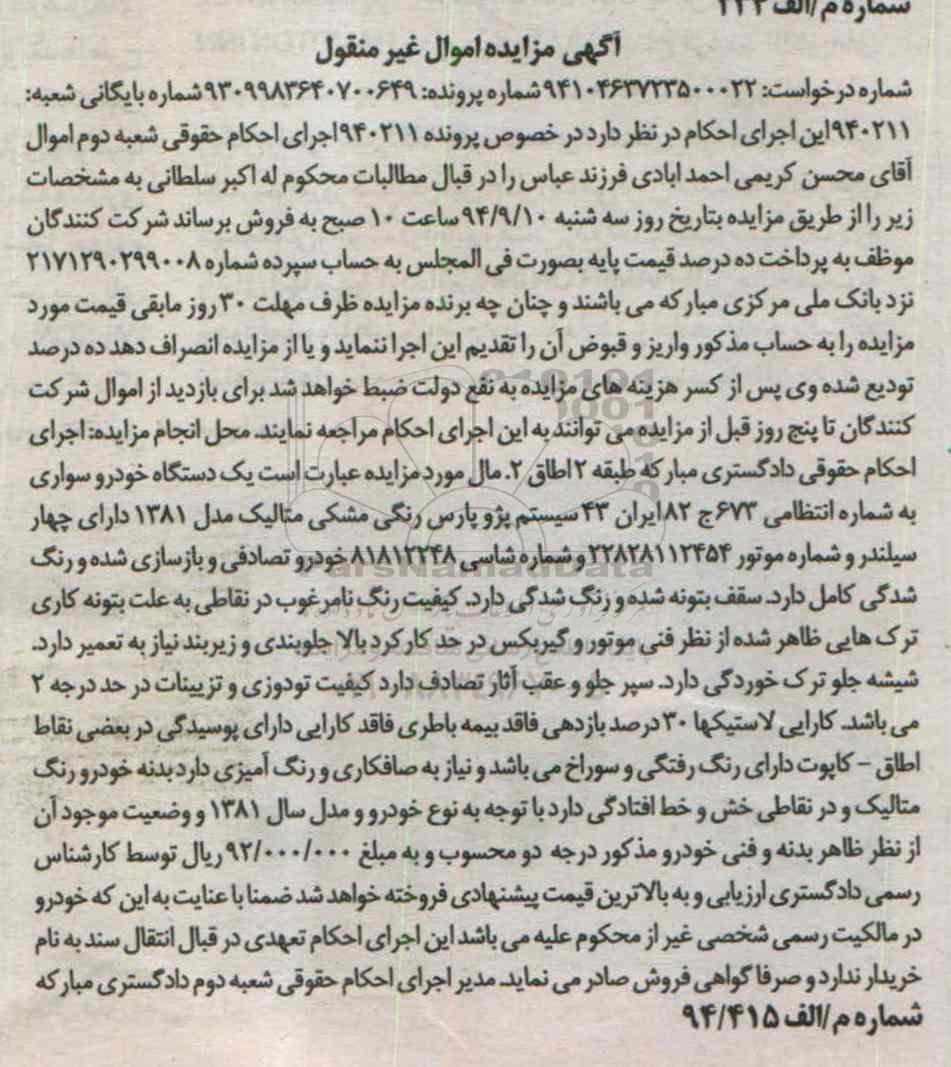 شماره م/الف ۲۲۲
آگهی مزایده اموال غیر منقول
شماره درخواست: ۹۴۱۰۴۶۳۷۲۳۵۰۰۰۲۲ شماره پرونده: ۹۳۰۹۹۸۳۶۴۰۷۰۰۶۴۹ شماره بایگانی شعبه:
۹۴۰۲۱۱ این اجرای احکام در نظر دارد در خصوص پرونده ۹۴۰۲۱۱ اجرای احکام حقوقی شعبه دوم اموال
آقای محسن کریمی احمد ابادی فرزند عباس را در قبال مطالبات محکوم له اکبر سلطانی به مشخصات
زیر را از طریق مزایده بتاریخ روز سه شنبه ۹۴/۹/۱۰ ساعت ۱۰ صبح به فروش برساند شرکت کنندگان
موظف به پرداخت ده درصد قیمت پایه بصورت فی المجلس به حساب سپرده شماره ۲۱۷۱۲۹۰۲۹۹۰۰۸
نزد بانک ملی مرکزی مبارکه می باشند و چنان چه برنده مزایده ظرف مهلت ۳۰ روز مابقی قیمت مورد
مزایده را به حساب مذکور واریز و قبوض آن را تقدیم این اجرا ننماید و یا از مزایده انصراف دهد ده درصد
تودیع شده وی پس از کسر هزینه های مزایده به نفع دولت ضبط خواهد شد برای بازدید از اموال شرکت
کنندگان تا پنج روز قبل از مزایده می توانند به این اجرای احکام مراجعه نمایند. محل انجام مزایده: اجرای
احکام حقوقی دادگستری مبارکه طبقه ۲ اطاق ۲. مال مورد مزایده عبارت است یک دستگاه خودرو سواری
به شماره انتظامی ۶۷۳ ج ۸۲ ایران ۴۳ سیستم پژو پارس رنگی مشکی متالیک مدل ۱۳۸۱ دارای چهار
سیلندر و شماره موتور ۲۲۸۲۸۱۱۲۴۵۴ و شماره شاسی ۸۱۸۱۲۲۴۸ خودرو تصادفی و بازسازی شده و رنگ
شدگی کامل دارد. سقف بتونه شده و رنگ شدگی دارد. کیفیت رنگ نامرغوب در نقاطی به علت بتونه کاری
ترک هایی ظاهر شده از نظر فنی موتور و گیربکس در حد کارکرد بالا جلوبندی و زیربند نیاز به تعمیر دارد.
شیشه جلو ترک خوردگی دارد. سپر جلو و عقب آثار تصادف دارد کیفیت تودوزی و تزیینات در حد درجه ۲
می باشد. کارایی لاستیکها ۳۰ درصد بازدهی فاقد بیمه باطری فاقد کارایی دارای پوسیدگی در بعضی نقاط
اطاق - کاپوت دارای رنگ رفتگی و سوراخ می باشد و نیاز به صافکاری و رنگ آمیزی دارد بدنه خودرو رنگ
متالیک و در نقاطی خش و خط افتادگی دارد با توجه به نوع خودرو و مدل سال ۱۳۸۱ و وضعیت موجود آن
از نظر ظاهر بدنه و فنی خودرو مذکور درجه دو محسوب و به مبلغ ۹۲/۰۰۰/۰۰۰ ریال توسط کارشناس
رسمی دادگستری ارزیابی و به بالاترین قیمت پیشنهادی فروخته خواهد شد ضمنا با عنایت به این که خودرو
در مالکیت رسمی شخصی غیر از محکوم علیه می باشد این اجرای احکام تعهدی در قبال انتقال سند به نام
خریدار ندارد و صرفا گواهی فروش صادر می نماید. مدیر اجرای احکام حقوقی شعبه دوم دادگستری مبارکه
شماره م/الف ۹۴/۴۱۵
ParsNamadData